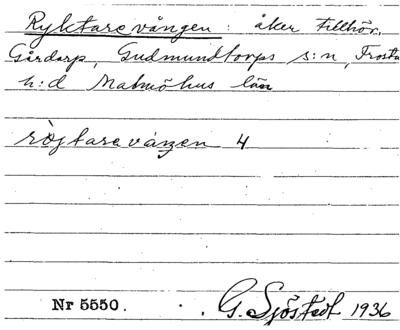 Ryktarevången: åker tillhör.
Gårdarp, Gudmundtorps s:n, Frosta
h:d Malmöhus län
röjtarevàngen 4
Nr 5550. G. Sjöstedt 1936